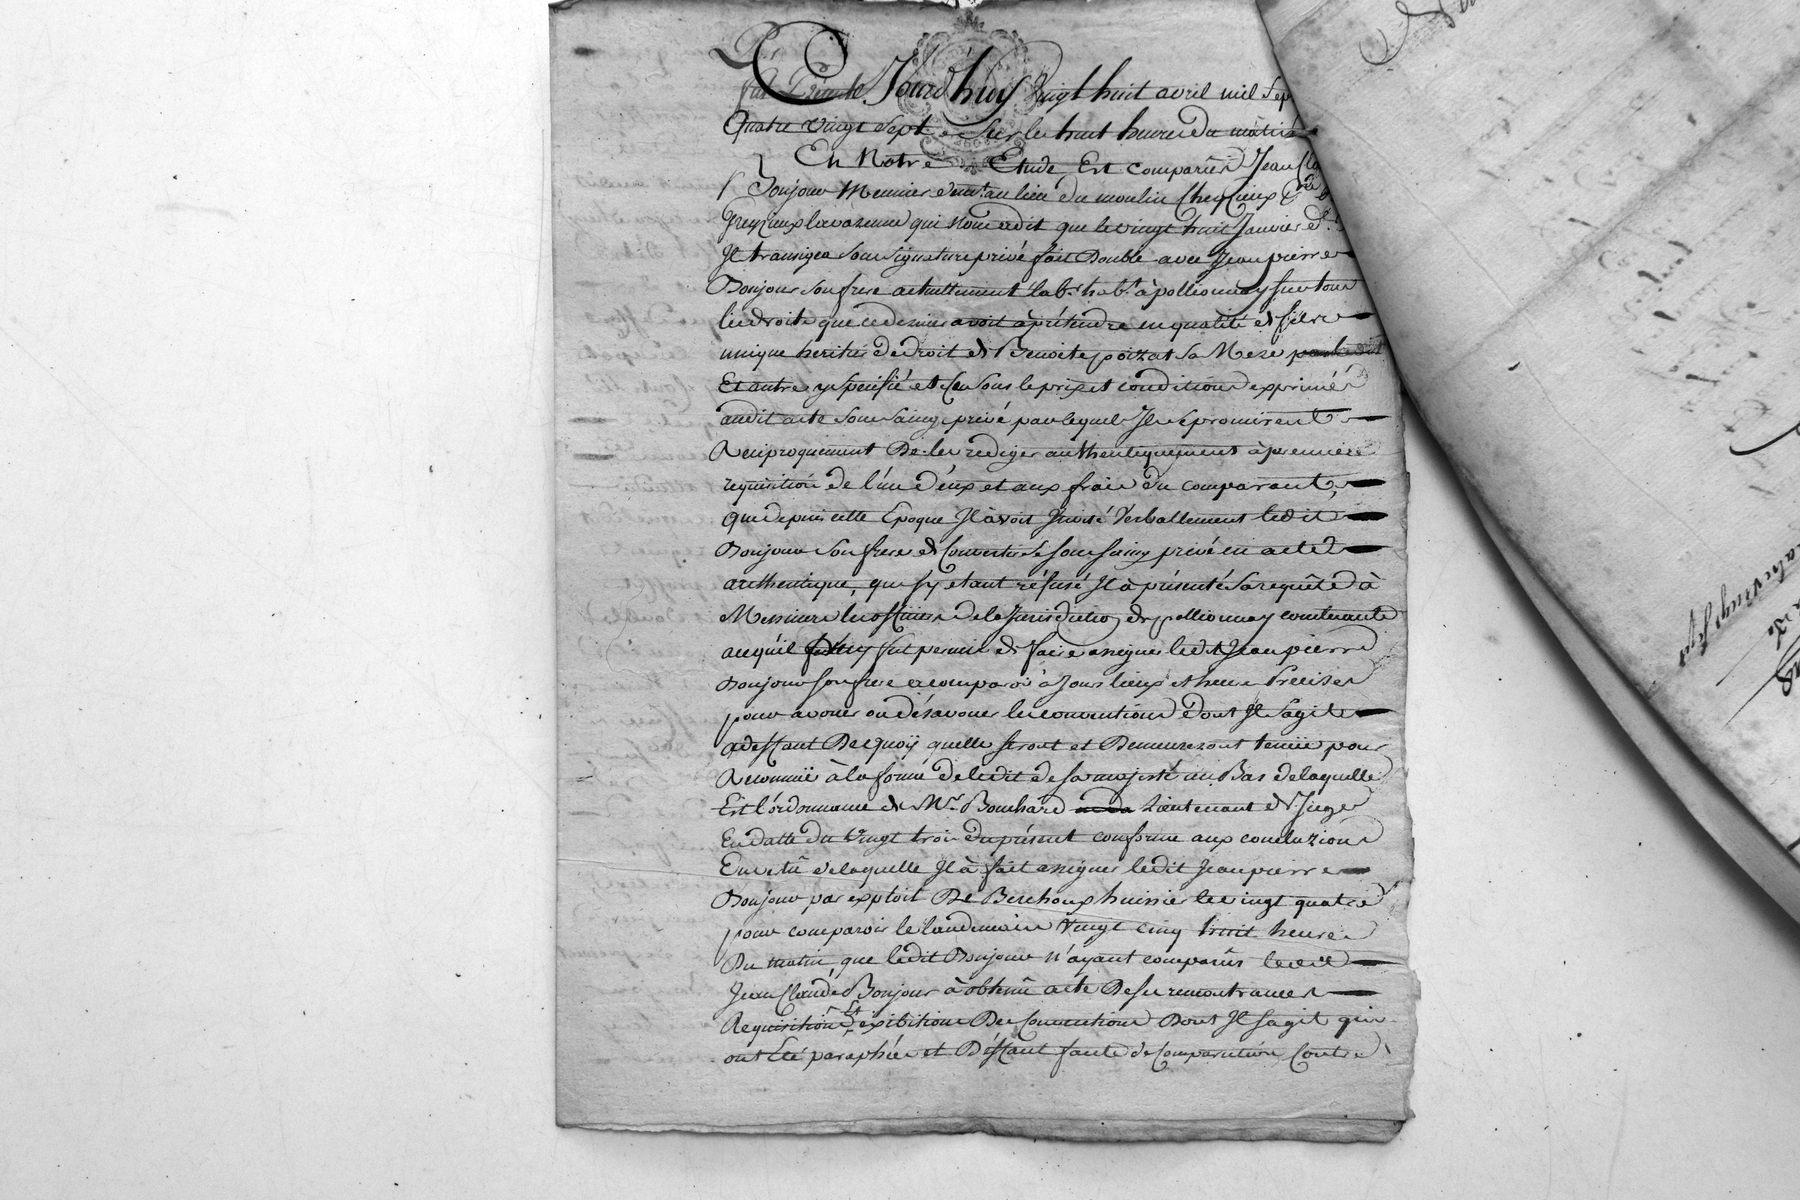 Ce Jourd'huy vingt huit avril mil sept
Quatre vingt sept sur les huit heures du matin
En Notre Etude Est comparu Jean
Bonjour Meunier demt. au lieu du moulin Cheyzieux
Greyzieux lavarenne qui Nous a dit que le vingt huit Janvier d.
Jl transigea sous signature privé fait Double avec Jean pierre
Bonjour son frere actuellement labr. habt. à pollionnay sur tous
les droits que ce dernier avoit à prétendre en qualité de fils
unique heritier de droit de Benoite poizat sa Mere
Et autres y spécifiés et ce sous le prix et conditions exprimés
audit acte sous saing privé par lequel Jls se promirent
Reciproquement De les rediger authentiquement à premiere
requisition de l'un d'eux et aux frais du comparant,
que depuis cette Epoque Jl avoit Jnvité Verballement ledit
Bonjour son frere de Convertir le sous saing privé en acte
authentique, que s'y etant réfusé Jl à présenté sa requête à
Messieurs les officiers de la Jurisdiction de pollionnay contenante
à ce qu'il luy fut permis de faire assigner ledit Jean pierre
Bonjour son frere à comparoir à Jours lieux et heure Precises
pour avouer ou désavouer les conventions dont Jl s'agit
à deffaut De quoy quelles seront et Demeureront tenües pour
Reconnuë à la forme de ledit de sa majesté au Bas de laquelle
Est l'ordonnance de Mr. Bouchard Lieutenant de Juge
En datte du vingt trois du présent conforme aux concluzions
En vertu de laquelle Jl à fait assigner ledit Jean pierre
Bonjour par exploit De Berchoux huissier le vingt quatre
pour comparoir le landemain vingt cinq huit heures
Du matin, que ledit Bonjour n'ayant comparu ledit
Jean Claude Bonjour à obtenu acte De ses remontrances
Requisitions Et exibitions Des Conventions Dont Jl s'agit qui
ont Eté paraphées et Déffaut faute de Comparution Contre